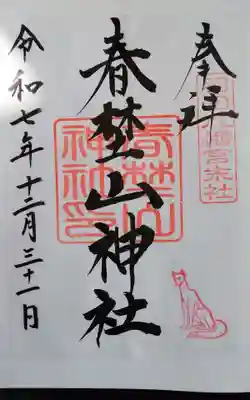 奉拝
幡宮末社
春埜山神社
春埜山
令和七年十二月三十一日